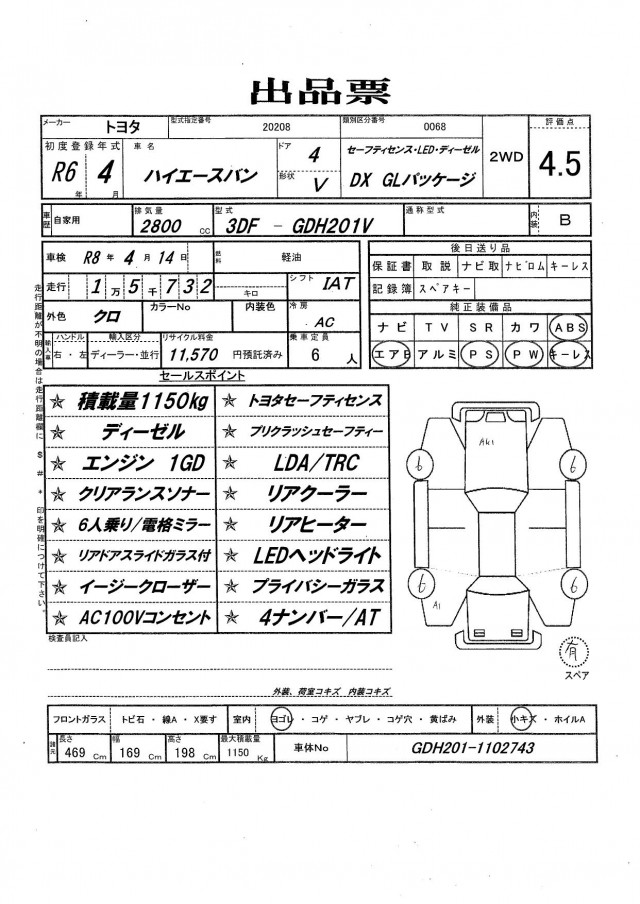 出品票
メーカー トヨタ 型式指定番号 20208 類別区分番号 0068 評価点
初度登録年式 車名 ドア 4 セーフティセンス・LED・ディーゼル 2WD 4.5
R6年 4月 ハイエースバン 形状 V DX GLパッケージ
車歴 自家用 排気量 2800 CC 型式 3DF - GDH201V 通称型式 内装 B
車検 R8年 4月 14日 燃料 軽油 後日送り品
保証書 取説 ナビ取 ナビロム キーレス
走行 1万5千732 キロ シフト IAT 記録簿 スペアキー
外色 クロ カラーNo 内装色 冷房 AC 純正装備品
ナビ TV SR カワ ABS
輸入車 ハンドル 右・左 輸入区分 ディーラー・並行 リサイクル料金 11,570 円預託済み 乗車定員 6人 エアB アルミ PS PW キーレス
走行距離が不明の場合は走行距離欄に $ # * 印を明確につけて下さい。
セールスポイント
☆ 積載量1150kg ☆ トヨタセーフティセンス
☆ ディーゼル ☆ プリクラッシュセーフティー
☆ エンジン 1GD ☆ LDA/TRC
☆ クリアランスソナー ☆ リアクーラー
☆ 6人乗り/電格ミラー ☆ リアヒーター
☆ リアドアスライドガラス付 ☆ LEDヘッドライト
☆ イージークローザー ☆ プライバシーガラス
☆ AC100Vコンセント ☆ 4ナンバー/AT
A41
6 6
6 6
A1
有
スペア
検査員記入
外装、荷室コキズ 内装コキズ
フロントガラス トビ石・線A・X要す 室内 ヨゴレ・コゲ・ヤブレ・コゲ穴・黄ばみ 外装 小キズ・ホイルA
諸元 長さ 469 Cm 幅 169 Cm 高さ 198 Cm 最大積載量 1150 Kg 車体No GDH201-1102743